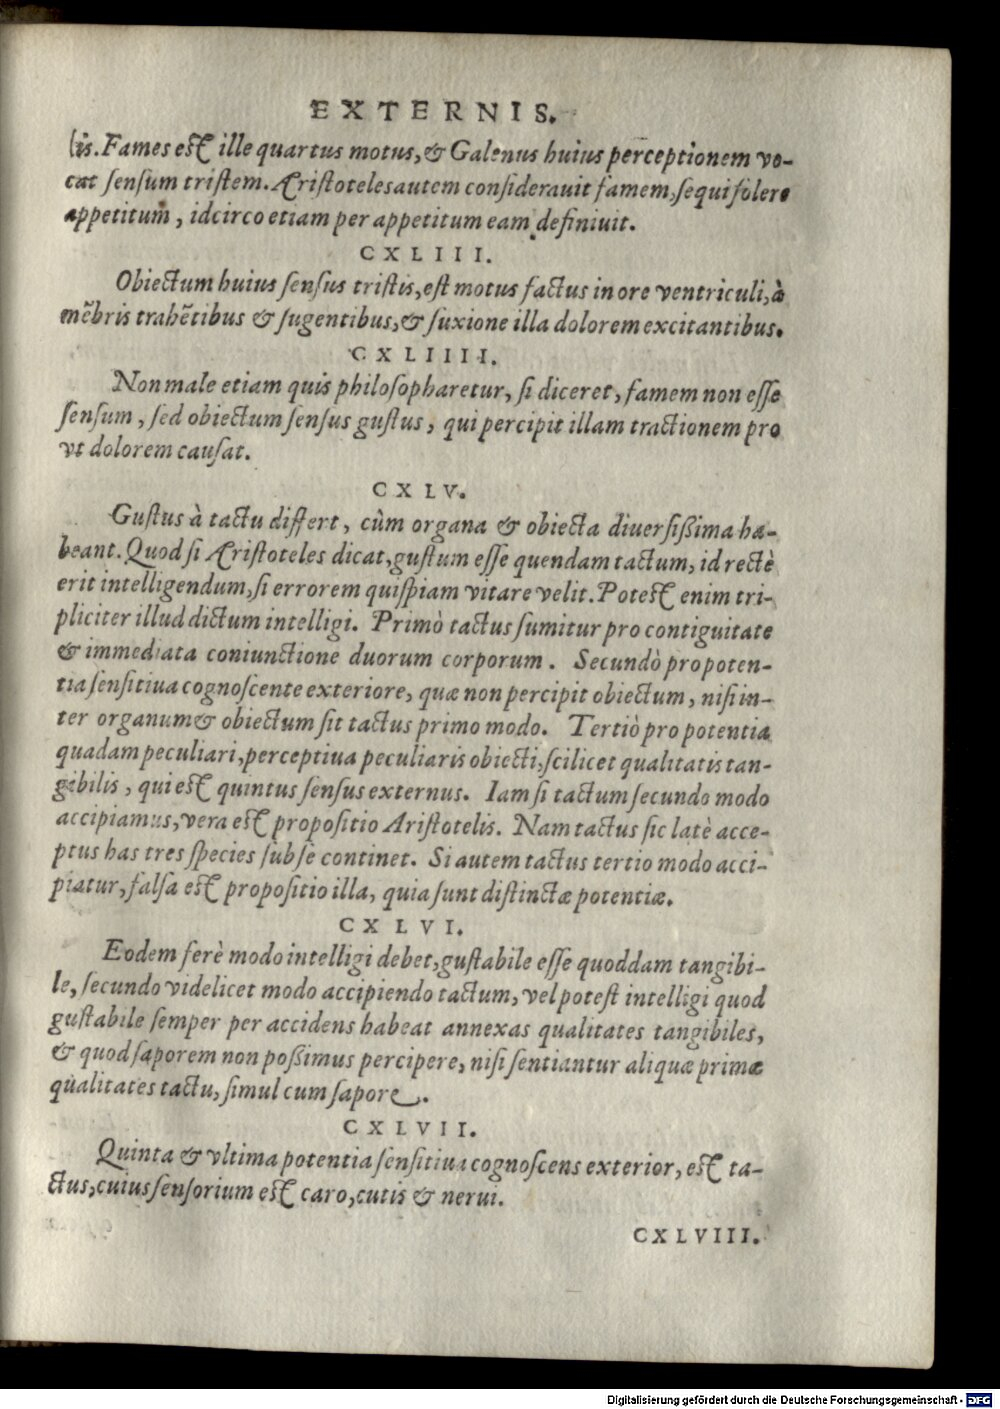 EXTERNIS.
ſis. Fames est ille quartus motus, & Galenus huius perceptionem vo-
cat ſenſum triſtem. Ariſtoteles autem conſiderauit famem, ſequi ſolere
appetitum, idcirco etiam per appetitum eam definiuit.
CXLIII.
Obiectum huius ſenſus triſtis, eſt motus factus in ore ventriculi, à
mẽbris trahẽtibus & ſugentibus, & ſuxione illa dolorem excitantibus.
CXLIIII.
Non male etiam quis philoſopharetur, ſi diceret, famem non eſſe
ſenſum, ſed obiectum ſenſus guſtus, qui percipit illam tractionem pro
vt dolorem cauſat.
CXLV.
Guſtus à tactu differt, cùm organa & obiecta diuerſißima ha-
beant. Quod ſi Ariſtoteles dicat, guſtum eſſe quendam tactum, id rectè
erit intelligendum, ſi errorem quiſpiam vitare velit. Potest enim tri-
pliciter illud dictum intelligi. Primò tactus ſumitur pro contiguitate
& immediata coniunctione duorum corporum. Secundò pro poten-
tia ſenſitiua cognoſcente exteriore, quæ non percipit obiectum, niſi in-
ter organum & obiectum ſit tactus primo modo. Tertiò pro potentia
quadam peculiari, perceptiua peculiaris obiecti, ſcilicet qualitatis tan-
gibilis, qui est quintus ſenſus externus. Iam ſi tactum ſecundo modo
accipiamus, vera est propoſitio Ariſtotelis. Nam tactus ſic latè acce-
ptus has tres ſpecies ſub ſe continet. Si autem tactus tertio modo acci-
piatur, falſa est propoſitio illa, quia ſunt diſtinctæ potentiæ.
CXLVI.
Eodem ferè modo intelligi debet, guſtabile eſſe quoddam tangibi-
le, ſecundo videlicet modo accipiendo tactum, vel poteſt intelligi quod
guſtabile ſemper per accidens habeat annexas qualitates tangibiles,
& quod ſaporem non poßimus percipere, niſi ſentiantur aliquæ primæ
qualitates tactu, ſimul cum ſapore.
CXLVII.
Quinta & vltima potentia ſenſitiua cognoſcens exterior, est ta-
ctus, cuius ſenſorium est caro, cutis & nerui.
CXLVIII.
Digitalisierung gefördert durch die Deutsche Forschungsgemeinschaft - DFG